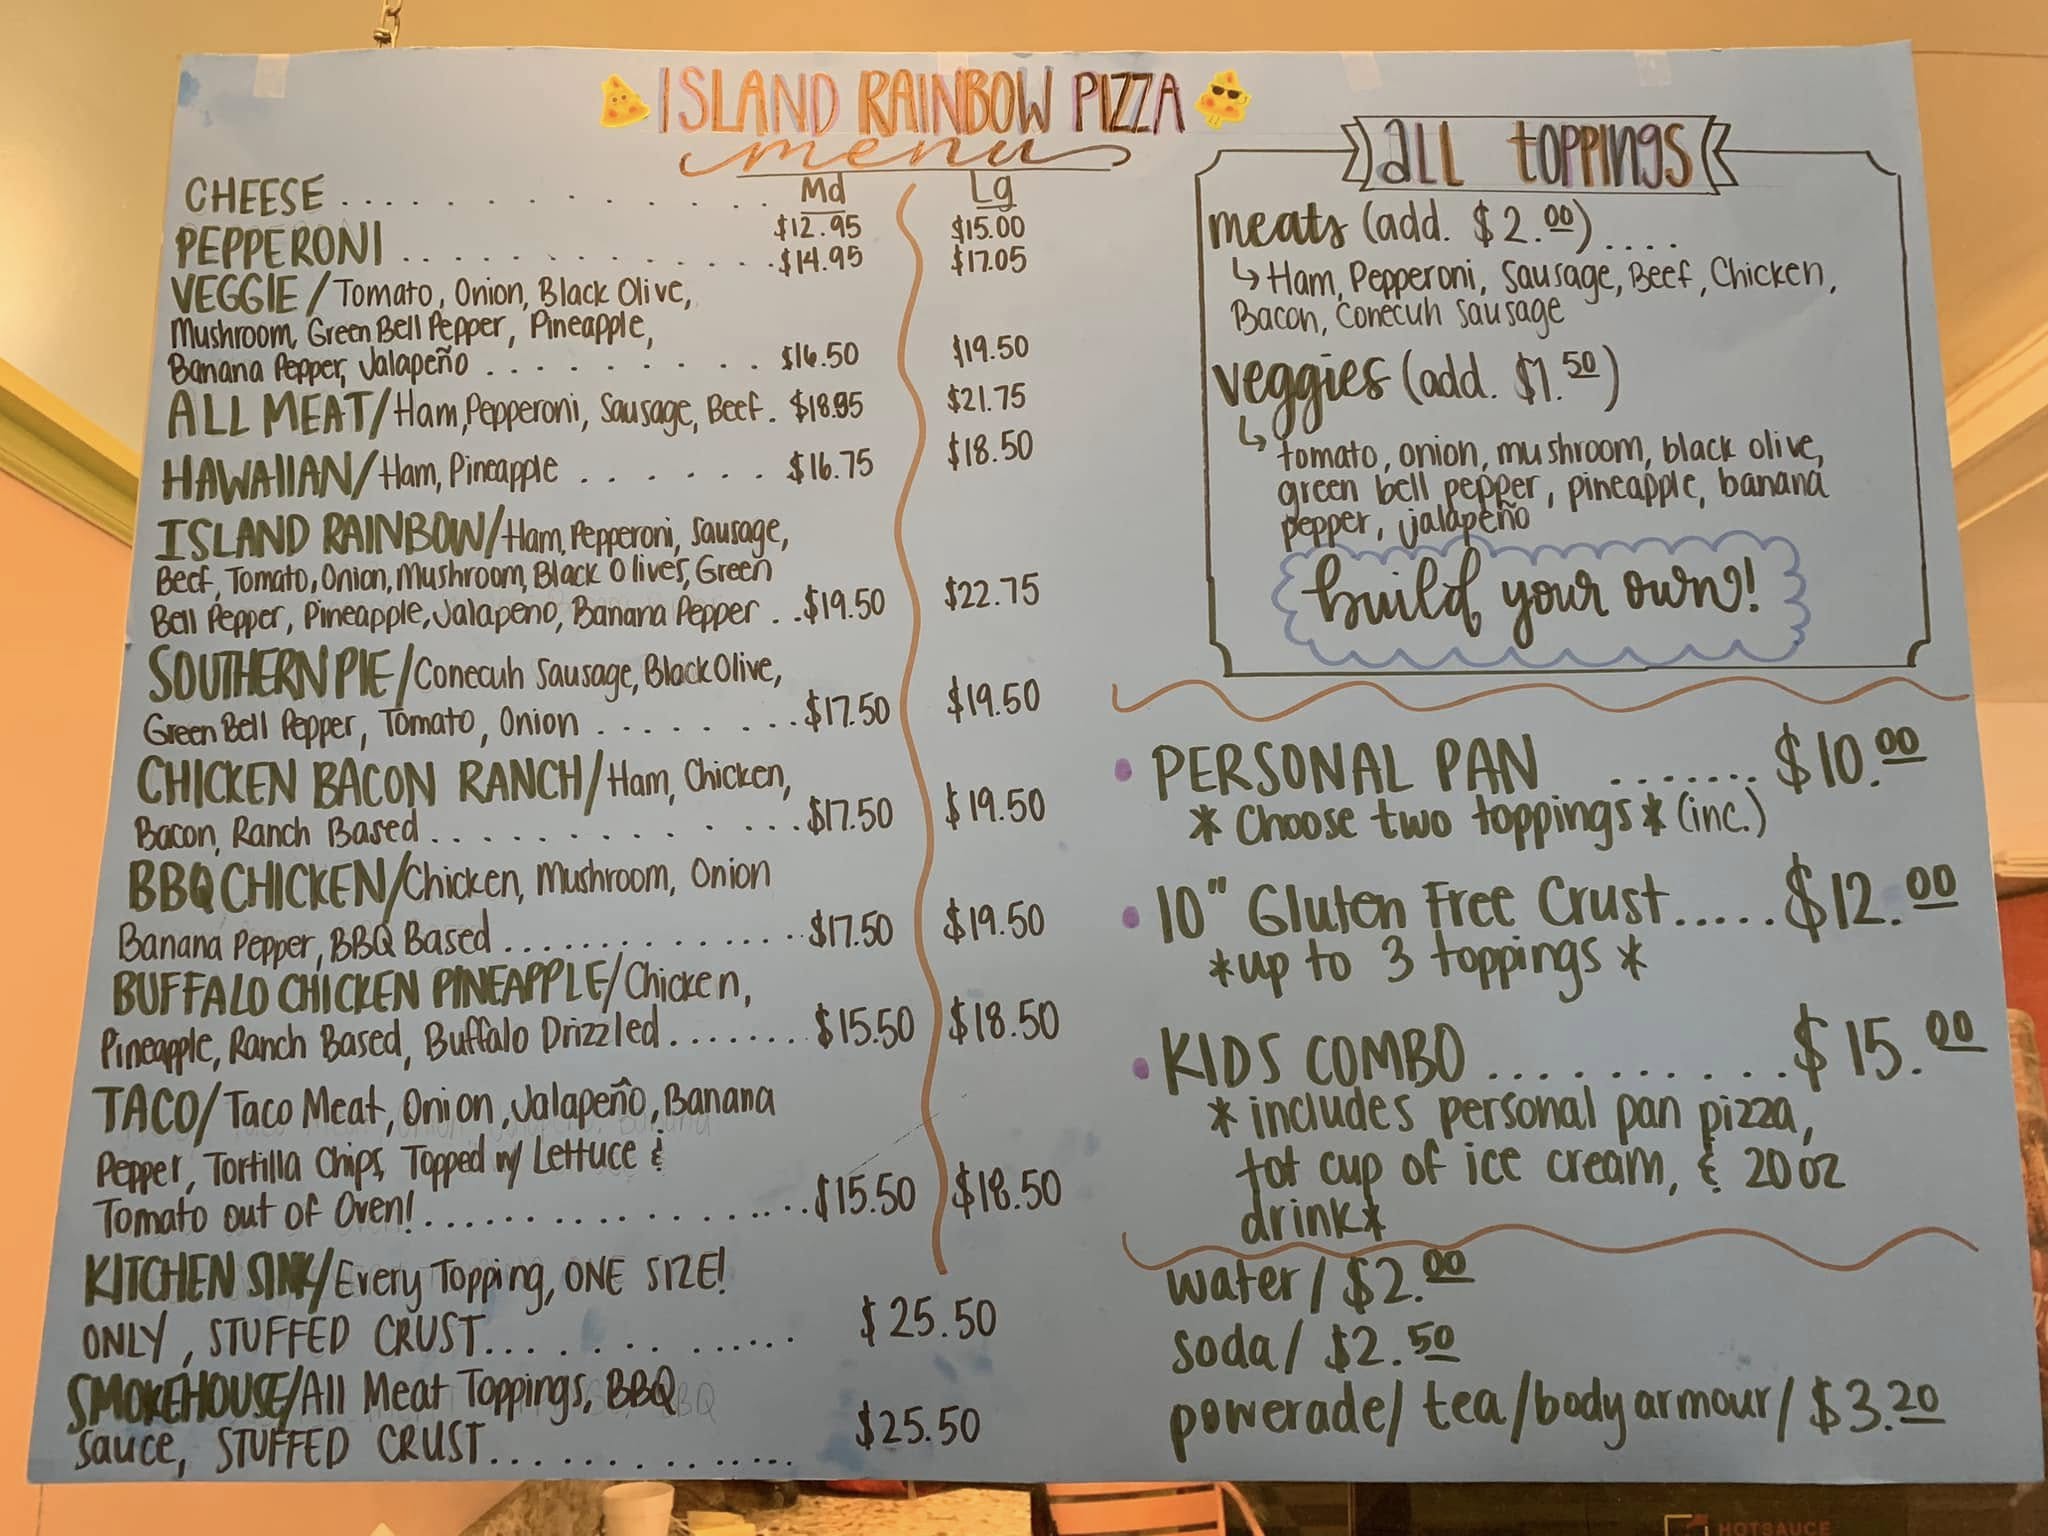 ISLAND RAINBOW PIZZA
menu
Md Lg
CHEESE . . . . . . . . . . . . . $12.95 $15.00
PEPPERONI . . . . . . . . . . . . . $14.95 $17.05
VEGGIE/Tomato, Onion, Black Olive,
Mushroom, Green Bell Pepper, Pineapple,
Banana Pepper, Jalapeño . . . . . . . . . . $16.50 $19.50
ALL MEAT/Ham, Pepperoni, Sausage, Beef. $18.95 $21.75
HAWAIIAN/Ham, Pineapple . . . . . . $16.75 $18.50
ISLAND RAINBOW/Ham, Pepperoni, Sausage,
Beef, Tomato, Onion, Mushroom, Black Olives, Green
Bell Pepper, Pineapple, Jalapeno, Banana Pepper . . $19.50 $22.75
SOUTHERN PIE/Conecuh Sausage, Black Olive,
Green Bell Pepper, Tomato, Onion . . . . . . . . $17.50 $19.50
CHICKEN BACON RANCH/Ham, Chicken,
Bacon, Ranch Based . . . . . . . . . . . . . $17.50 $19.50
BBQ CHICKEN/Chicken, Mushroom, Onion
Banana Pepper, BBQ Based . . . . . . . . . . . . . . $17.50 $19.50
BUFFALO CHICKEN PINEAPPLE/Chicken,
Pineapple, Ranch Based, Buffalo Drizzled . . . . . . . . $15.50 $18.50
TACO/Taco Meat, Onion, Jalapeño, Banana
Pepper, Tortilla Chips, Topped w/ Lettuce &
Tomato out of Oven! . . . . . . . . . . . . . . . . . . . $15.50 $18.50
KITCHEN SINK/Every Topping, ONE SIZE!
ONLY, STUFFED CRUST . . . . . . . . . . . . . $25.50
SMOKEHOUSE/All Meat Toppings, BBQ
Sauce, STUFFED CRUST . . . . . . . . . . . . . $25.50
all toppings
meats (add. $2.00) . . . .
↳ Ham, Pepperoni, Sausage, Beef, Chicken,
Bacon, Conecuh Sausage
veggies (add. $1.50)
↳ tomato, onion, mushroom, black olive,
green bell pepper, pineapple, banana
pepper, jalapeño
build your own!
• PERSONAL PAN . . . . . . . $10.00
* Choose two toppings * (inc.)
• 10" Gluten Free Crust . . . . . $12.00
*up to 3 toppings *
• KIDS COMBO . . . . . . . . . . . $15.00
* includes personal pan pizza,
tot cup of ice cream, & 20 oz
drink*
water/ $2.00
soda/ $2.50
powerade/ tea/body armour/ $3.20
HOTSAUCE